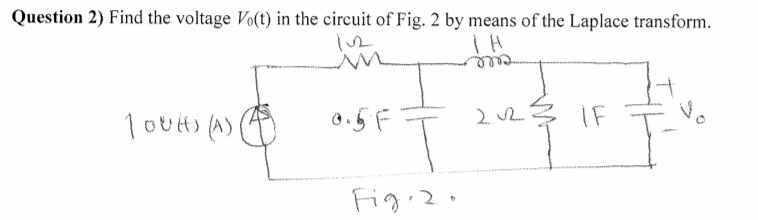 Question 2) Find the voltage V₀(t) in the circuit of Fig. 2 by means of the Laplace transform.
1Ω 1H
10U(t) (A) 0.5F 2Ω 1F + V₀ -
Fig.2.